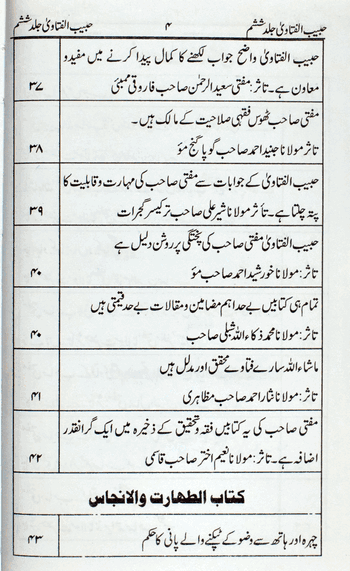 حبیب الفتاویٰ جلد ششم ۴ حبیب الفتاویٰ جلد ششم
حبیب الفتاویٰ واضح جواب لکھنے کا کمال پیدا کرنے میں مفید و
معاون ہے۔ تاثر: مفتی سعید الرحمٰن صاحب فاروقی ممبئی ۳۷
مفتی صاحب ٹھوس فقہی صلاحیت کے مالک ہیں۔
تاثر مولانا جنید احمد صاحب گوپا گنج مؤ ۳۸
حبیب الفتاویٰ کے جوابات سے مفتی صاحب کی مہارت و قابلیت کا
پتہ چلتا ہے۔ تأثر مولانا شیر علی صاحب ترکیسر گجرات ۳۹
حبیب الفتاویٰ مفتی صاحب کی پختگی پر روشن دلیل ہے
تاثر: مولانا خورشید احمد صاحب مؤ ۴۰
تمام ہی کتابیں بے حد اہم مضامین و مقالات بے حد قیمتی ہیں
تاثر: مولانا محمد ذکاء اللہ شبلی صاحب ۴۰
ماشاء اللہ سارے فتاوے محقق اور مدلل ہیں
تاثر: مولانا نثار احمد صاحب مظاہری ۴۱
مفتی صاحب کی یہ کتابیں فقہ و تحقیق کے ذخیرہ میں ایک گرانقدر
اضافہ ہے۔ تاثر: مولانا نعیم اختر صاحب قاسمی ۴۲
کتاب الطہارت والانجاس
چہرہ اور ہاتھ سے وضو کے ٹپکنے والے پانی کا حکم ۴۳